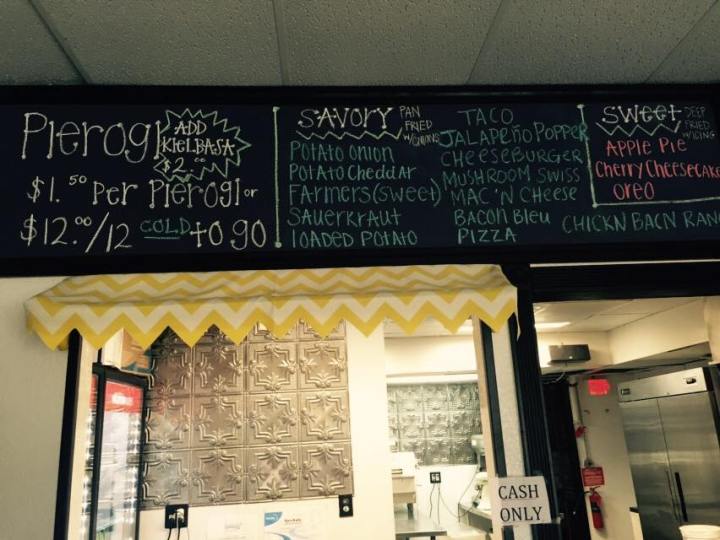 PIEROGI
ADD
KIELBASA
$2.00
$1.50 PER PIEROGI or
$12.00/12 COLD to go
SAVORY
PAN
FRIED
W/ONIONS
POTATO ONION
POTATO CHEDDAR
FARMERS (SWEET)
SAUERKRAUT
LOADED POTATO
TACO
JALAPEÑO POPPER
CHEESEBURGER
MUSHROOM SWISS
MAC 'N CHEESE
BACON BLEU
PIZZA
SWEET
DEEP
FRIED
W/ICING
APPLE PIE
CHERRY CHEESECAKE
OREO
CHICKN BACN RAN
CASH
ONLY